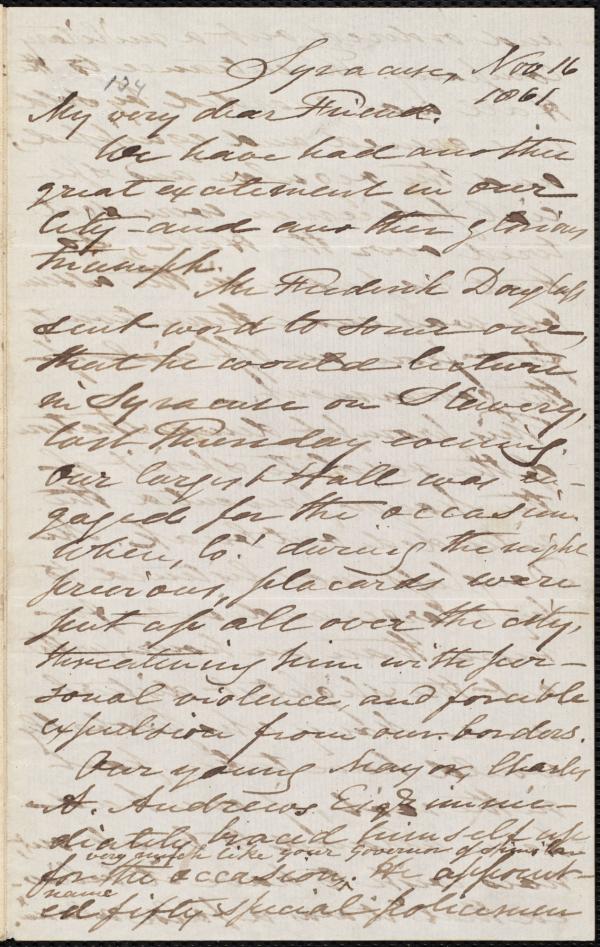 Syracuse, Nov 16
1861
134
My very dear Friend.
We have had another
great excitement in our
City - and another glorious
triumph.
Mr Frederik Douglass
sent word to some one,
that he would lecture
in Syracuse on Slavery,
last Thursday evening.
Our largest Hall was en-
gaged for the occasion
When, lo! during the night
previous, placards were
put up all over the city,
threatening him with per-
sonal violence, and forcible
expulsion from our borders.
Our young Mayor, Charles
A. Andrews Esqr imme-
diately braced himself up
very much like your governor of similar
for the occasion, He appoint-
name
ed fifty special policemen